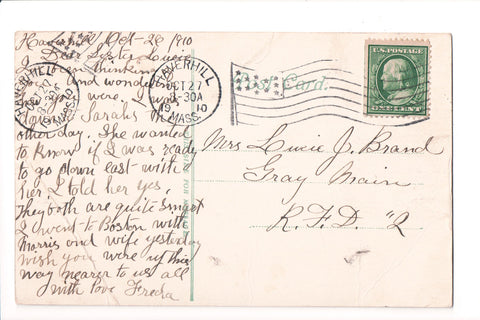 Oct-26/1910
Dear Sister Lucie
thinking
and wonder
were I was
Sarahs
other day. She wanted
to know if I was ready
to go down east with
her I told her yes,
They both are quite smart
I went to Boston with
Morris and wife yesterday
wish you were up this
way nearer to us all
with love Freda
HAVERHILL
MASS.
HAVERHILL
OCT 27
8-30A
1910
MASS.
Post Card.
U.S. POSTAGE
ONE CENT
Mrs Lucie J. Brand
Gray Main
R.F.D. #2